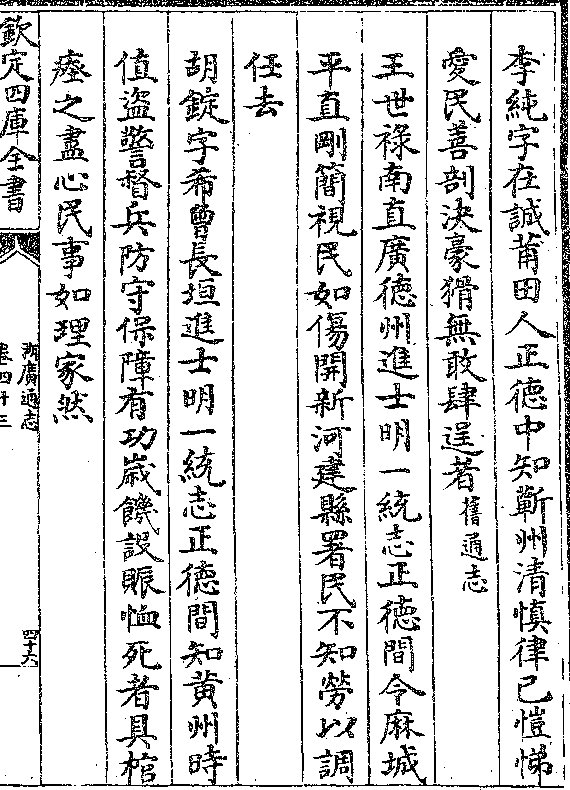 李純字在誠莆田人正德中知蘄州清慎律已愷悌
愛民善剖決豪猾無敢肆逞者舊通志
王世祿南直廣德州進士明一統志正德間令麻城
平直剛簡視民如傷開新河建縣署民不知勞以調
任去
胡錠字希曾長垣進士明一統志正德間知黄州時
值盜警督兵防守保障有功歲饑設賑恤死者具棺
瘞之盡心民事如理家然
欽定四庫全書
湖廣通志
卷四十三
四十六